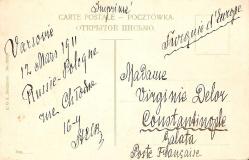 Imprimé
CARTE POSTALE — POCZTÓWKA.
ОТКРЫТОЕ ПИСЬМО.
Turquie d'Europe
Varsovie
12 Mars 1911
Russie-Pologne
rue Chłodna
16-4
Madame
Virginie Delor
Constantinople
Galata
Poste Française